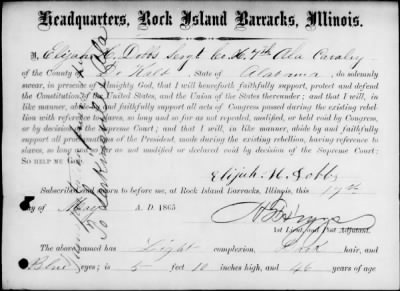 Headquarters, Rock Island Barracks, Illinois.
I, Elijah H. Dobbs Sergt Co. H. 7th Ala Cavalry
of the County of De Kalb, State of Alabama, do solemnly
swear, in presence of Almighty God, that I will henceforth faithfully support, protect and defend
the Constitution of the United States, and the Union of the States thereunder; and that I will, in
like manner, abide by and faithfully support all acts of Congress passed during the existing rebellion
with reference to slaves, so long and so far as not repealed, modified, or held void by Congress,
or by decision of the Supreme Court; and that I will, in like manner, abide by and faithfully
support all proclamations of the President, made during the existing rebellion, having reference to
slaves, so long and so far as not modified or declared void by decision of the Supreme Court:
So HELP ME GOD.
Elijah H. Dobbs
Subscribed and sworn to before me, at Rock Island Barracks, Illinois, this 17th
day of May A. D. 1865
1st Lieut. and Post Adjutant.
The above named has Light complexion, Dark hair, and
Blue eyes; is 5 feet 10 inches high, and 46 years of age